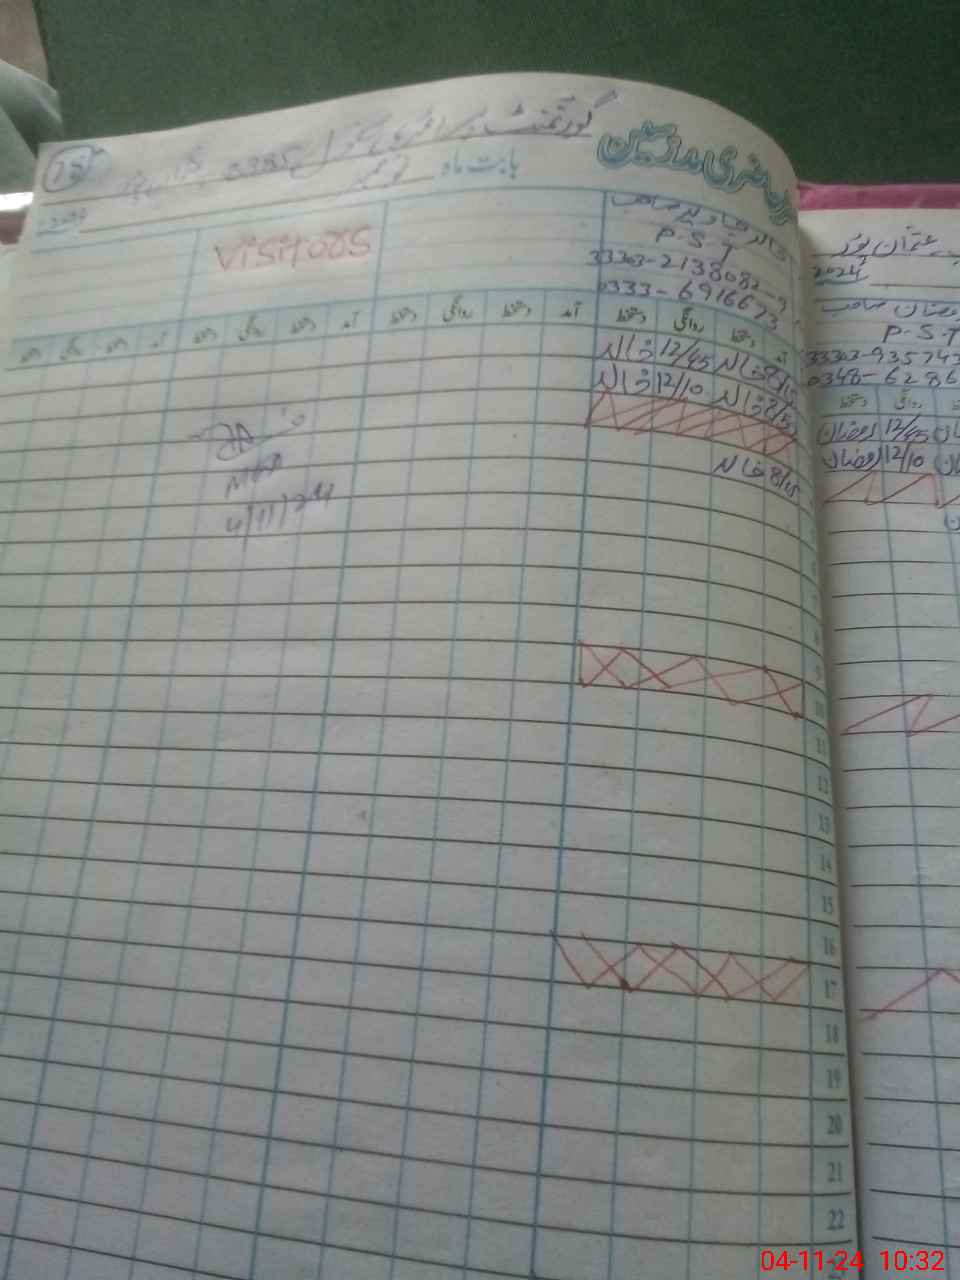 78
گورنمنٹ
0385
حاضری مدرسین
بابت ماہ نومبر
2024
VISITORS
خالد جاوید صاحب
P.S.T
33303-2138082-9
0333-6916673
آمد دستخط روانگی دستخط آمد دستخط روانگی دستخط آمد دستخط روانگی دستخط آمد دستخط روانگی دستخط
8/15 خالد 12/45 خالد
خالد 12/10 خالد
8/15 خالد
MEA
4/11/24
8
9
10
11
12
13
14
15
16
17
18
19
20
21
22
عثمان پور
2024
رمضان صاحب
P.S.T
33303-935743
0348-6286
روانگی دستخط
12/45 رمضان
12/10 رمضان
04-11-24 10:32